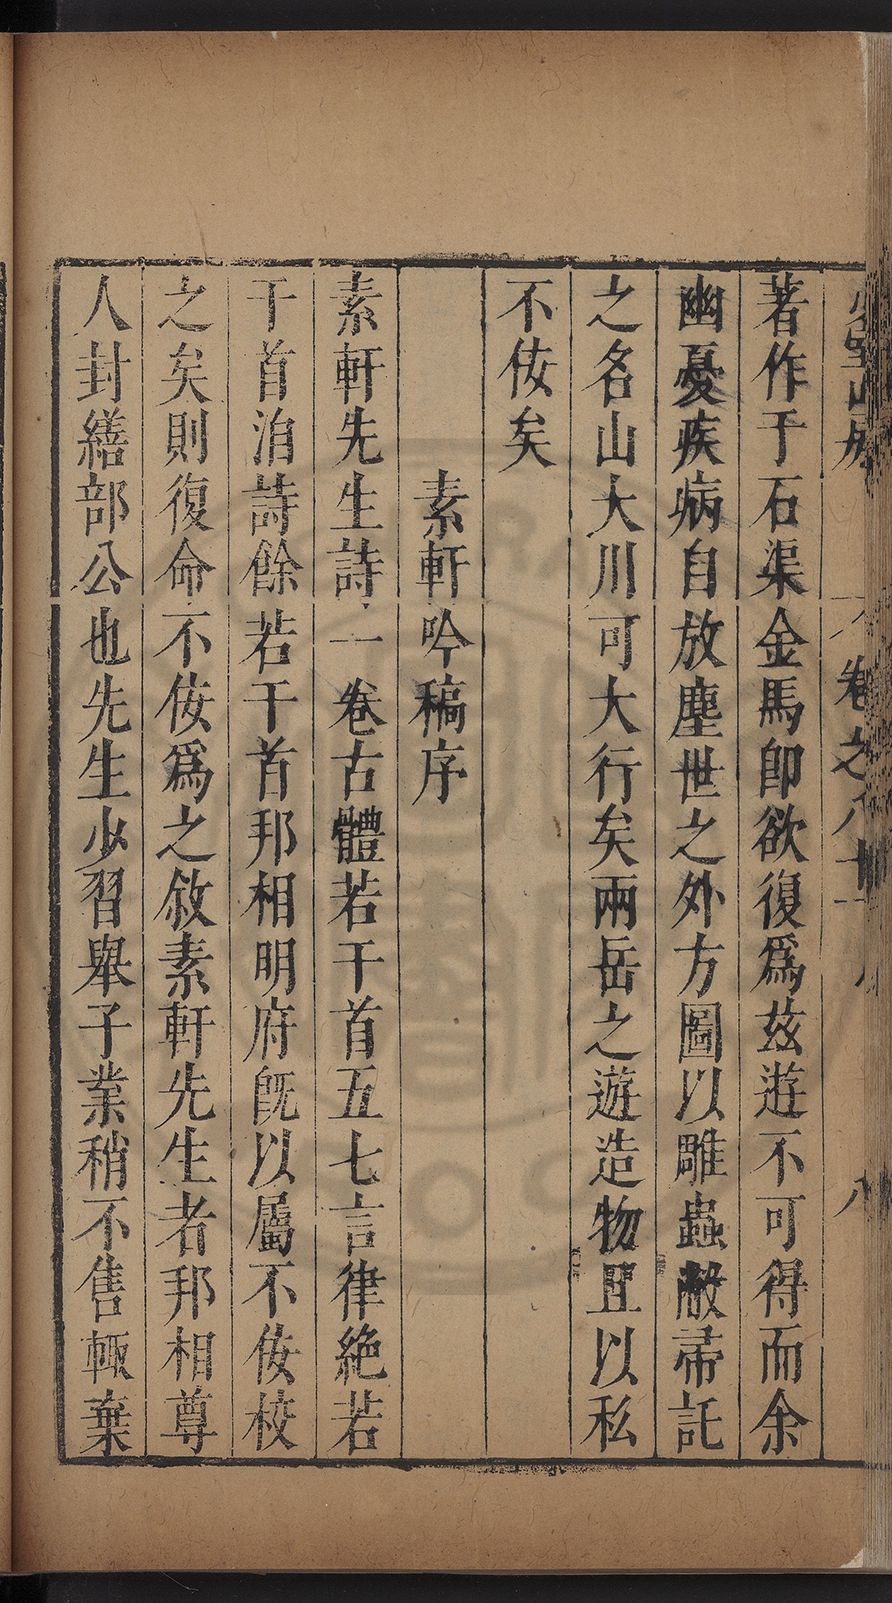 著作于石渠金馬卽欲復爲茲遊不可得而余
幽憂疾病自放塵世之外方圖以雕蟲敝帚託
之名山大川可大行矣兩岳之遊造物且以私
不佞矣
素軒吟稿序
素軒先生詩一卷古體若干首五七言律絶若
干首洎詩餘若干首邦相明府旣以屬不佞校
之矣則復命不佞爲之敘素軒先生者邦相尊
人封繕部公也先生少習舉子業稍不售輒棄
卷之八十
八